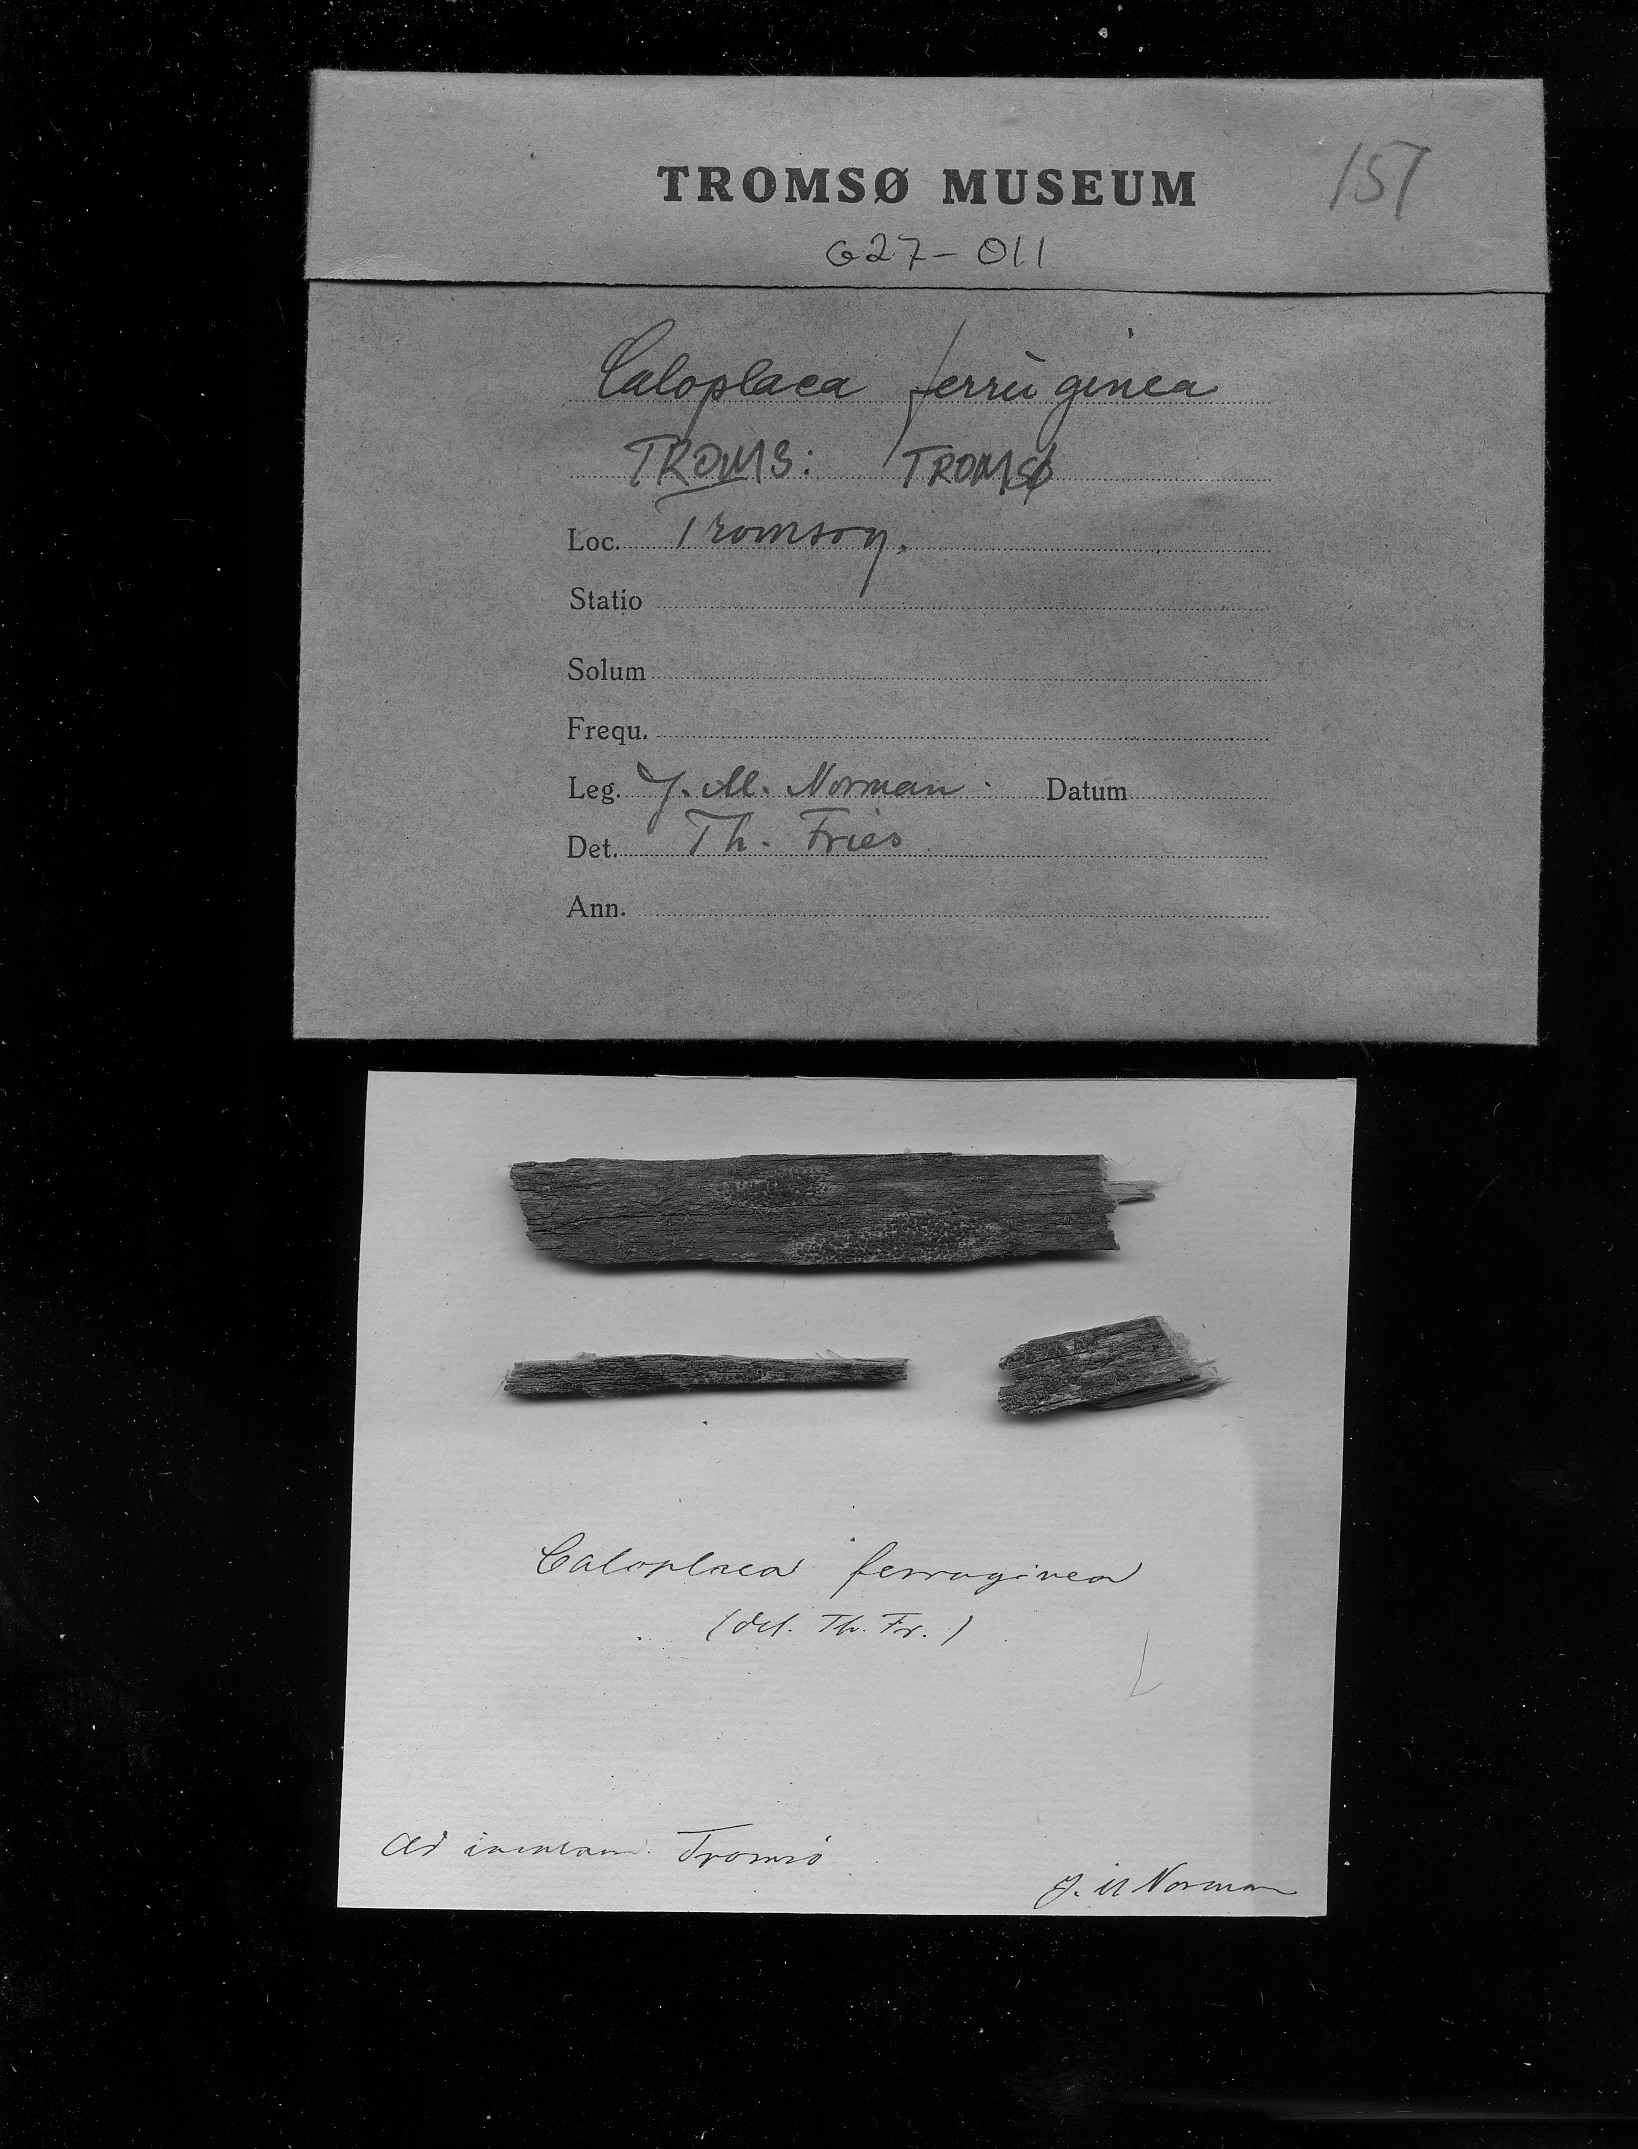 TROMSØ MUSEUM 157
G27-011
Caloplaca ferruginea
TROMS: TROMSØ
Loc. Tromsøy.
Statio
Solum
Frequ.
Leg. J. M. Norman. Datum
Det. Th. Fries
Ann.
Caloplaca ferruginea
(det. Th. Fr.)
Ad insulam Tromsö
J. M Norman